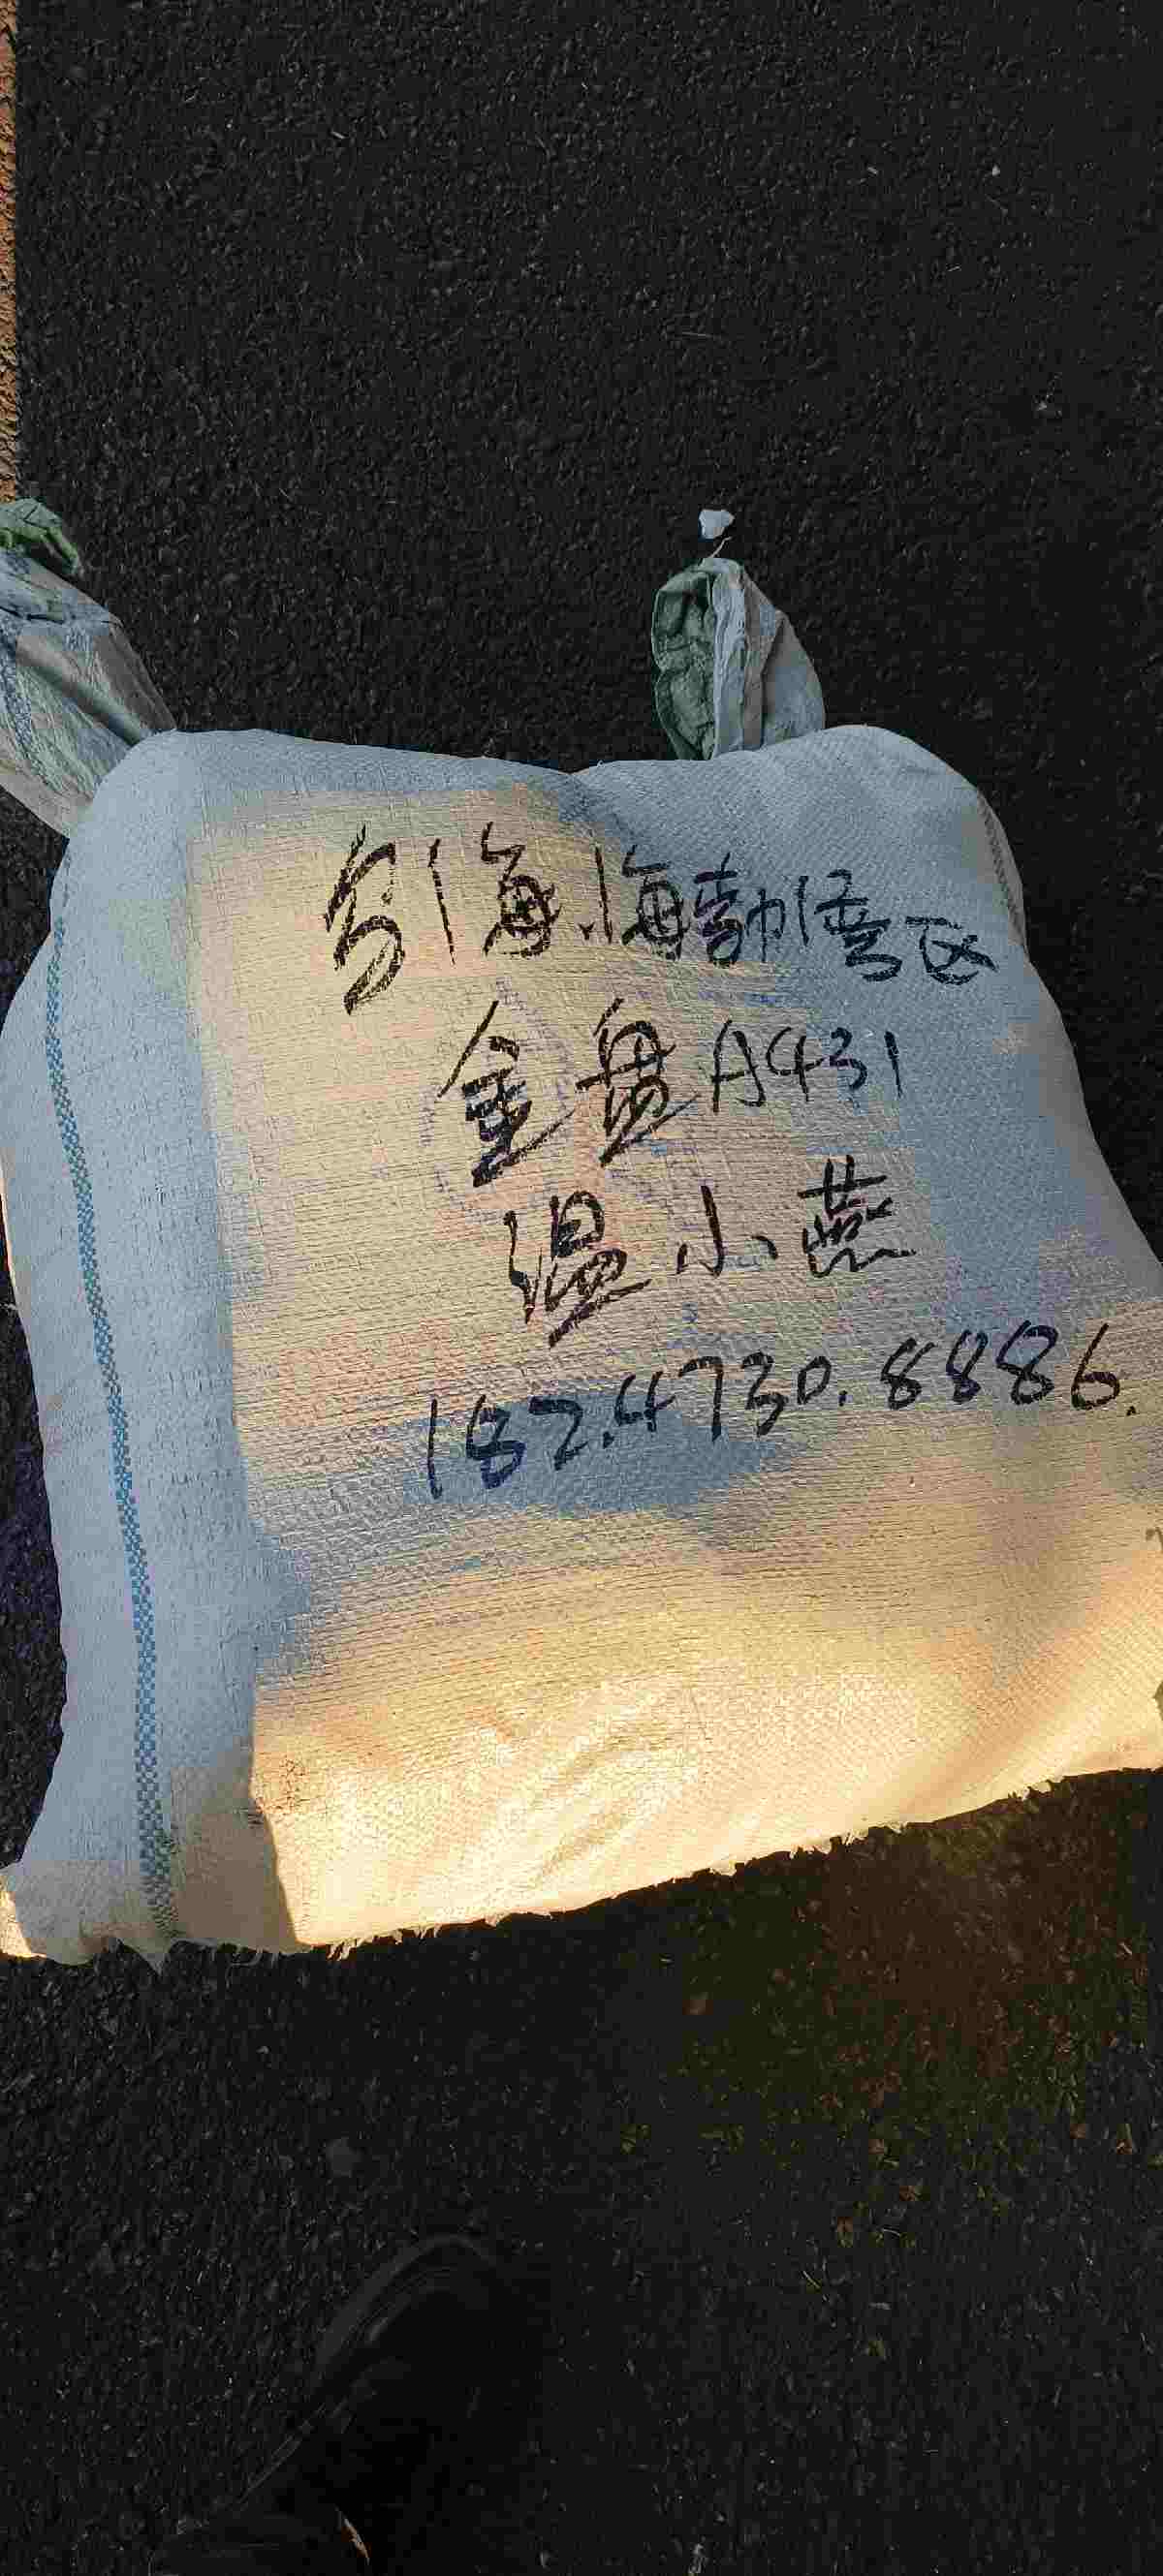 乌海.海勃湾区
金盘A431
温小燕
182.4730.8886.